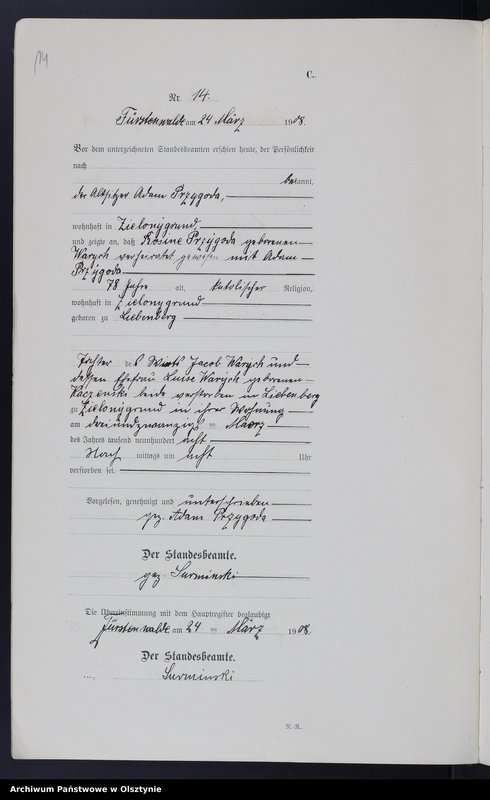 14
C.
Nr. 14.
Fürstenwalde am 24 März 1908.
Vor dem unterzeichneten Standesbeamten erschien heute, der Persönlichkeit
nach
bekannt,
der Altsitzer Adam Przygoda,
wohnhaft in Zielonygrund
und zeigte an, daß Rosine Przygoda geborenen
Warych verheiratet gewesen mit Adam
Przygoda
78 Jahre alt, katolischer Religion,
wohnhaft in Zielonygrund
geboren zu Liebenberg
Tochter des Wirts Jacob Warych und
dessen Ehefrau Luise Warych geborenen
Kaczenski beide verstorben in Liebenberg
zu Zielonygrund in ihrer Wohnung
am dreiundzwanzigs März
des Jahres tausend neunhundert acht
Nach mittags um acht Uhr
verstorben sei.
Vorgelesen, genehmigt und unterschrieben
gez. Adam Przygoda
Der Standesbeamte.
gez. Surminski
Die Übereinstimmung mit dem Hauptregister beglaubigt
Fürstenwalde am 24 März 1908.
Der Standesbeamte.
Surminski
R.-R.
Archiwum Państwowe w Olsztynie